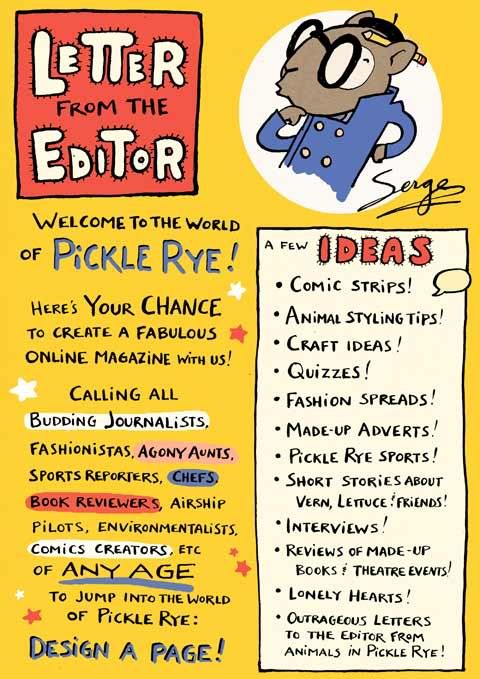 LETTER
FROM THE
EDITOR
Serge
WELCOME TO THE WORLD
OF PICKLE RYE!
HERE'S YOUR CHANCE
TO CREATE A FABULOUS
ONLINE MAGAZINE WITH US!
CALLING ALL
BUDDING JOURNALISTS,
FASHIONISTAS, AGONY AUNTS,
SPORTS REPORTERS, CHEFS
BOOK REVIEWERS, AIRSHIP
PILOTS, ENVIRONMENTALISTS,
COMICS CREATORS, ETC
OF ANY AGE
TO JUMP INTO THE WORLD
OF PICKLE RYE:
DESIGN A PAGE!
A FEW IDEAS
• COMIC STRIPS!
• ANIMAL STYLING TIPS!
• CRAFT IDEAS!
• QUIZZES!
• FASHION SPREADS!
• MADE-UP ADVERTS!
• PICKLE RYE SPORTS!
• SHORT STORIES ABOUT
VERN, LETTUCE & FRIENDS!
• INTERVIEWS!
• REVIEWS OF MADE-UP
BOOKS & THEATRE EVENTS!
• LONELY HEARTS!
• OUTRAGEOUS LETTERS
TO THE EDITOR FROM
ANIMALS IN PICKLE RYE!